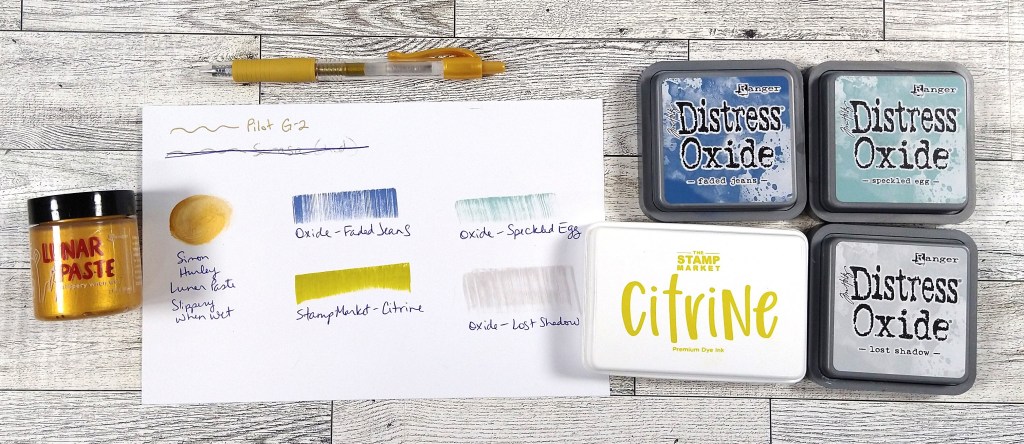 Pilot G-2
LUNAR
PASTE
Simon
Hurley
Lunar Paste
Slippery
when wet
Oxide - Faded Jeans
Oxide - Speckled Egg
Stamp Market - Citrine
Oxide - Lost Shadow
Ranger
Distress
Oxide
— faded jeans —
Ranger
Distress
Oxide
— speckled egg —
THE
STAMP
MARKET
CiTRiNE
Premium Dye Ink
Ranger
Distress
Oxide
— lost shadow —